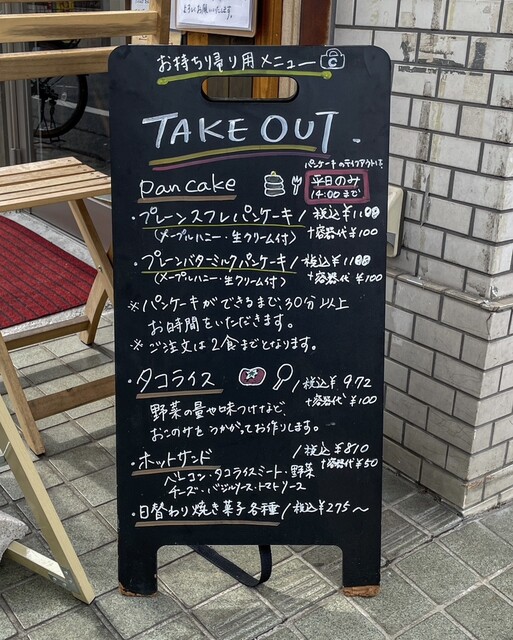 お持ち帰り用メニュー
TAKE OUT.
パンケーキのテイクアウトは
Pancake
平日のみ
14:00まで
・プレーンスフレパンケーキ / 税込¥1100
(メープルハニー・生クリーム付) +容器代¥100
・プレーンバターミルクパンケーキ / 税込¥1100
(メープルハニー・生クリーム付) +容器代¥100
※パンケーキができるまで、30分以上
お時間をいただきます。
※ご注文は2食までとなります。
・タコライス / 税込¥972
+容器代¥100
野菜の量や味つけなど、
おこのみをうかがってお作りします。
・ホットサンド / 税込¥810
+容器代¥50
ベーコン・タコライスミート・野菜
チーズ・バジルソース・トマトソース
・日替わり焼き菓子各種 / 税込¥275〜